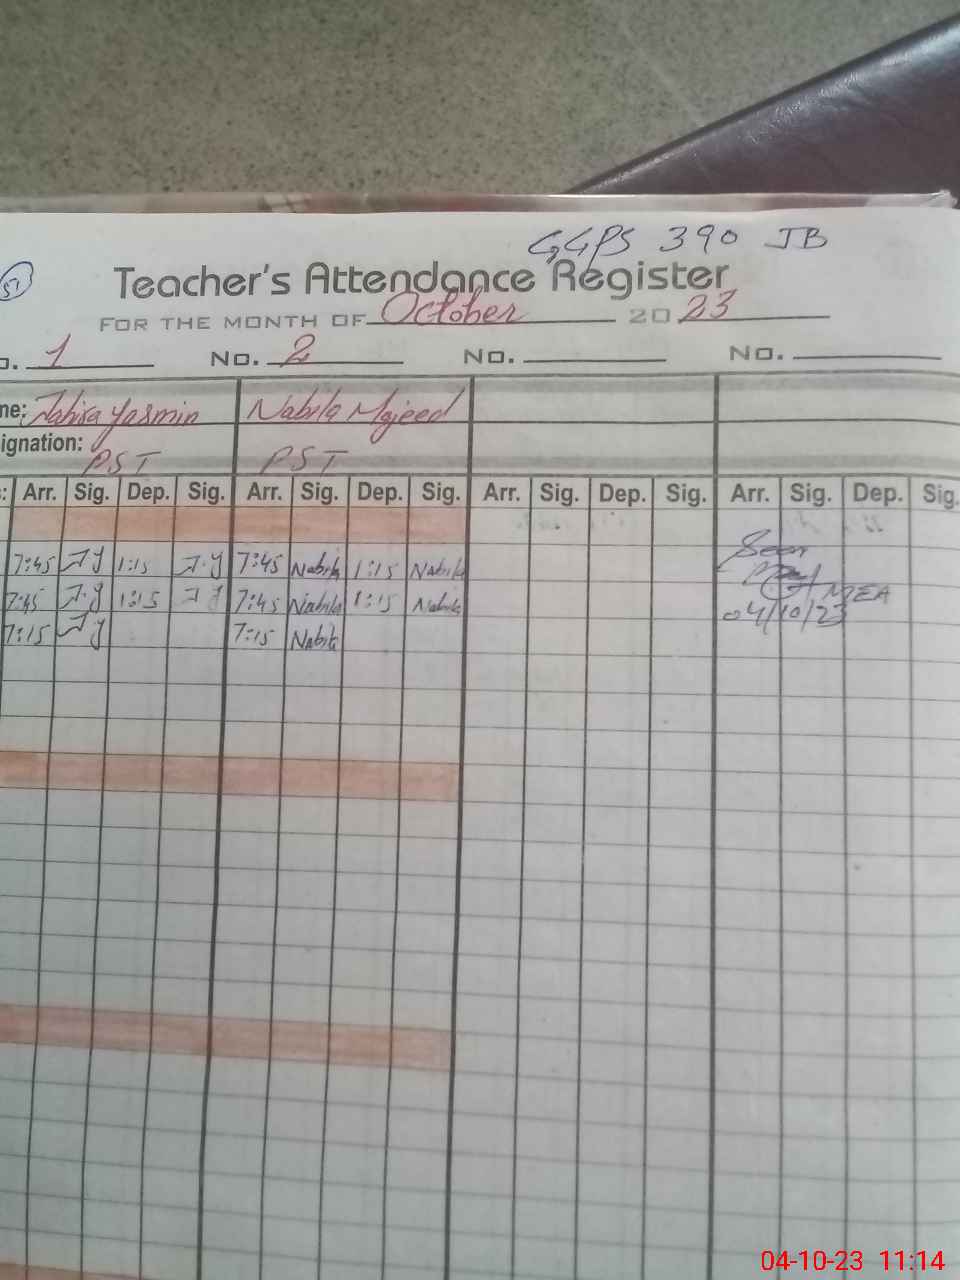 GGPS 390 JB
51
Teacher's Attendance Register
FOR THE MONTH OF October 2023
o. 1 No. 2 No. No.
me: Tahira Yasmin Nabila Majeed
signation: PST PST
s: Arr. Sig. Dep. Sig. Arr. Sig. Dep. Sig. Arr. Sig. Dep. Sig. Arr. Sig. Dep. Sig.
7:45 T.Y 1:15 T.Y 7:45 Nabila 1:15 Nabila Seen
7:45 T.Y 1:15 T.Y 7:45 Nabila 1:15 Nabila MEA
04/10/23
7:15 T.Y 7:15 Nabila
04-10-23 11:14